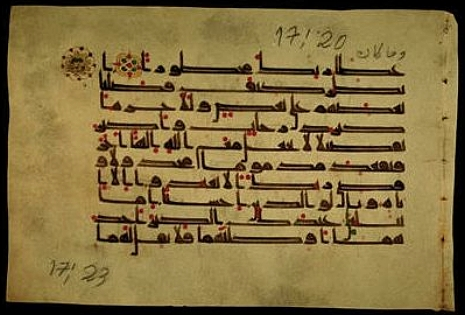 17:20
وما كان
عطا ربك محظورا ا
نظر كيف فضلنا
بعضهم على بعض وللاخره ا
كبر درجت واكبر
تفضيلا لا تجعل مع الله الها اخر
فتقعد مذموما مخذولا و
قضى ربك الا تعبدوا الا ا
ياه وبالولدين احسنا اما
يبلغن عندك الكبر احد
هما او كلهما فلا تقل لهما
17:23